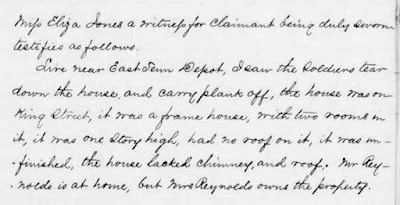 Miss Eliza Jones a witness for Claimant being duly sworn
testifies as follows.
Live near East Tenn Depot, I saw the soldiers tear
down the house, and carry plank off, the house was on
King Street, it was a frame house, with two rooms in
it, it was one story high, had no roof on it, it was un-
-finished, the house lacked chimney, and roof. Mr Rey-
-nolds is at home, but Mrs Reynolds owns the property.